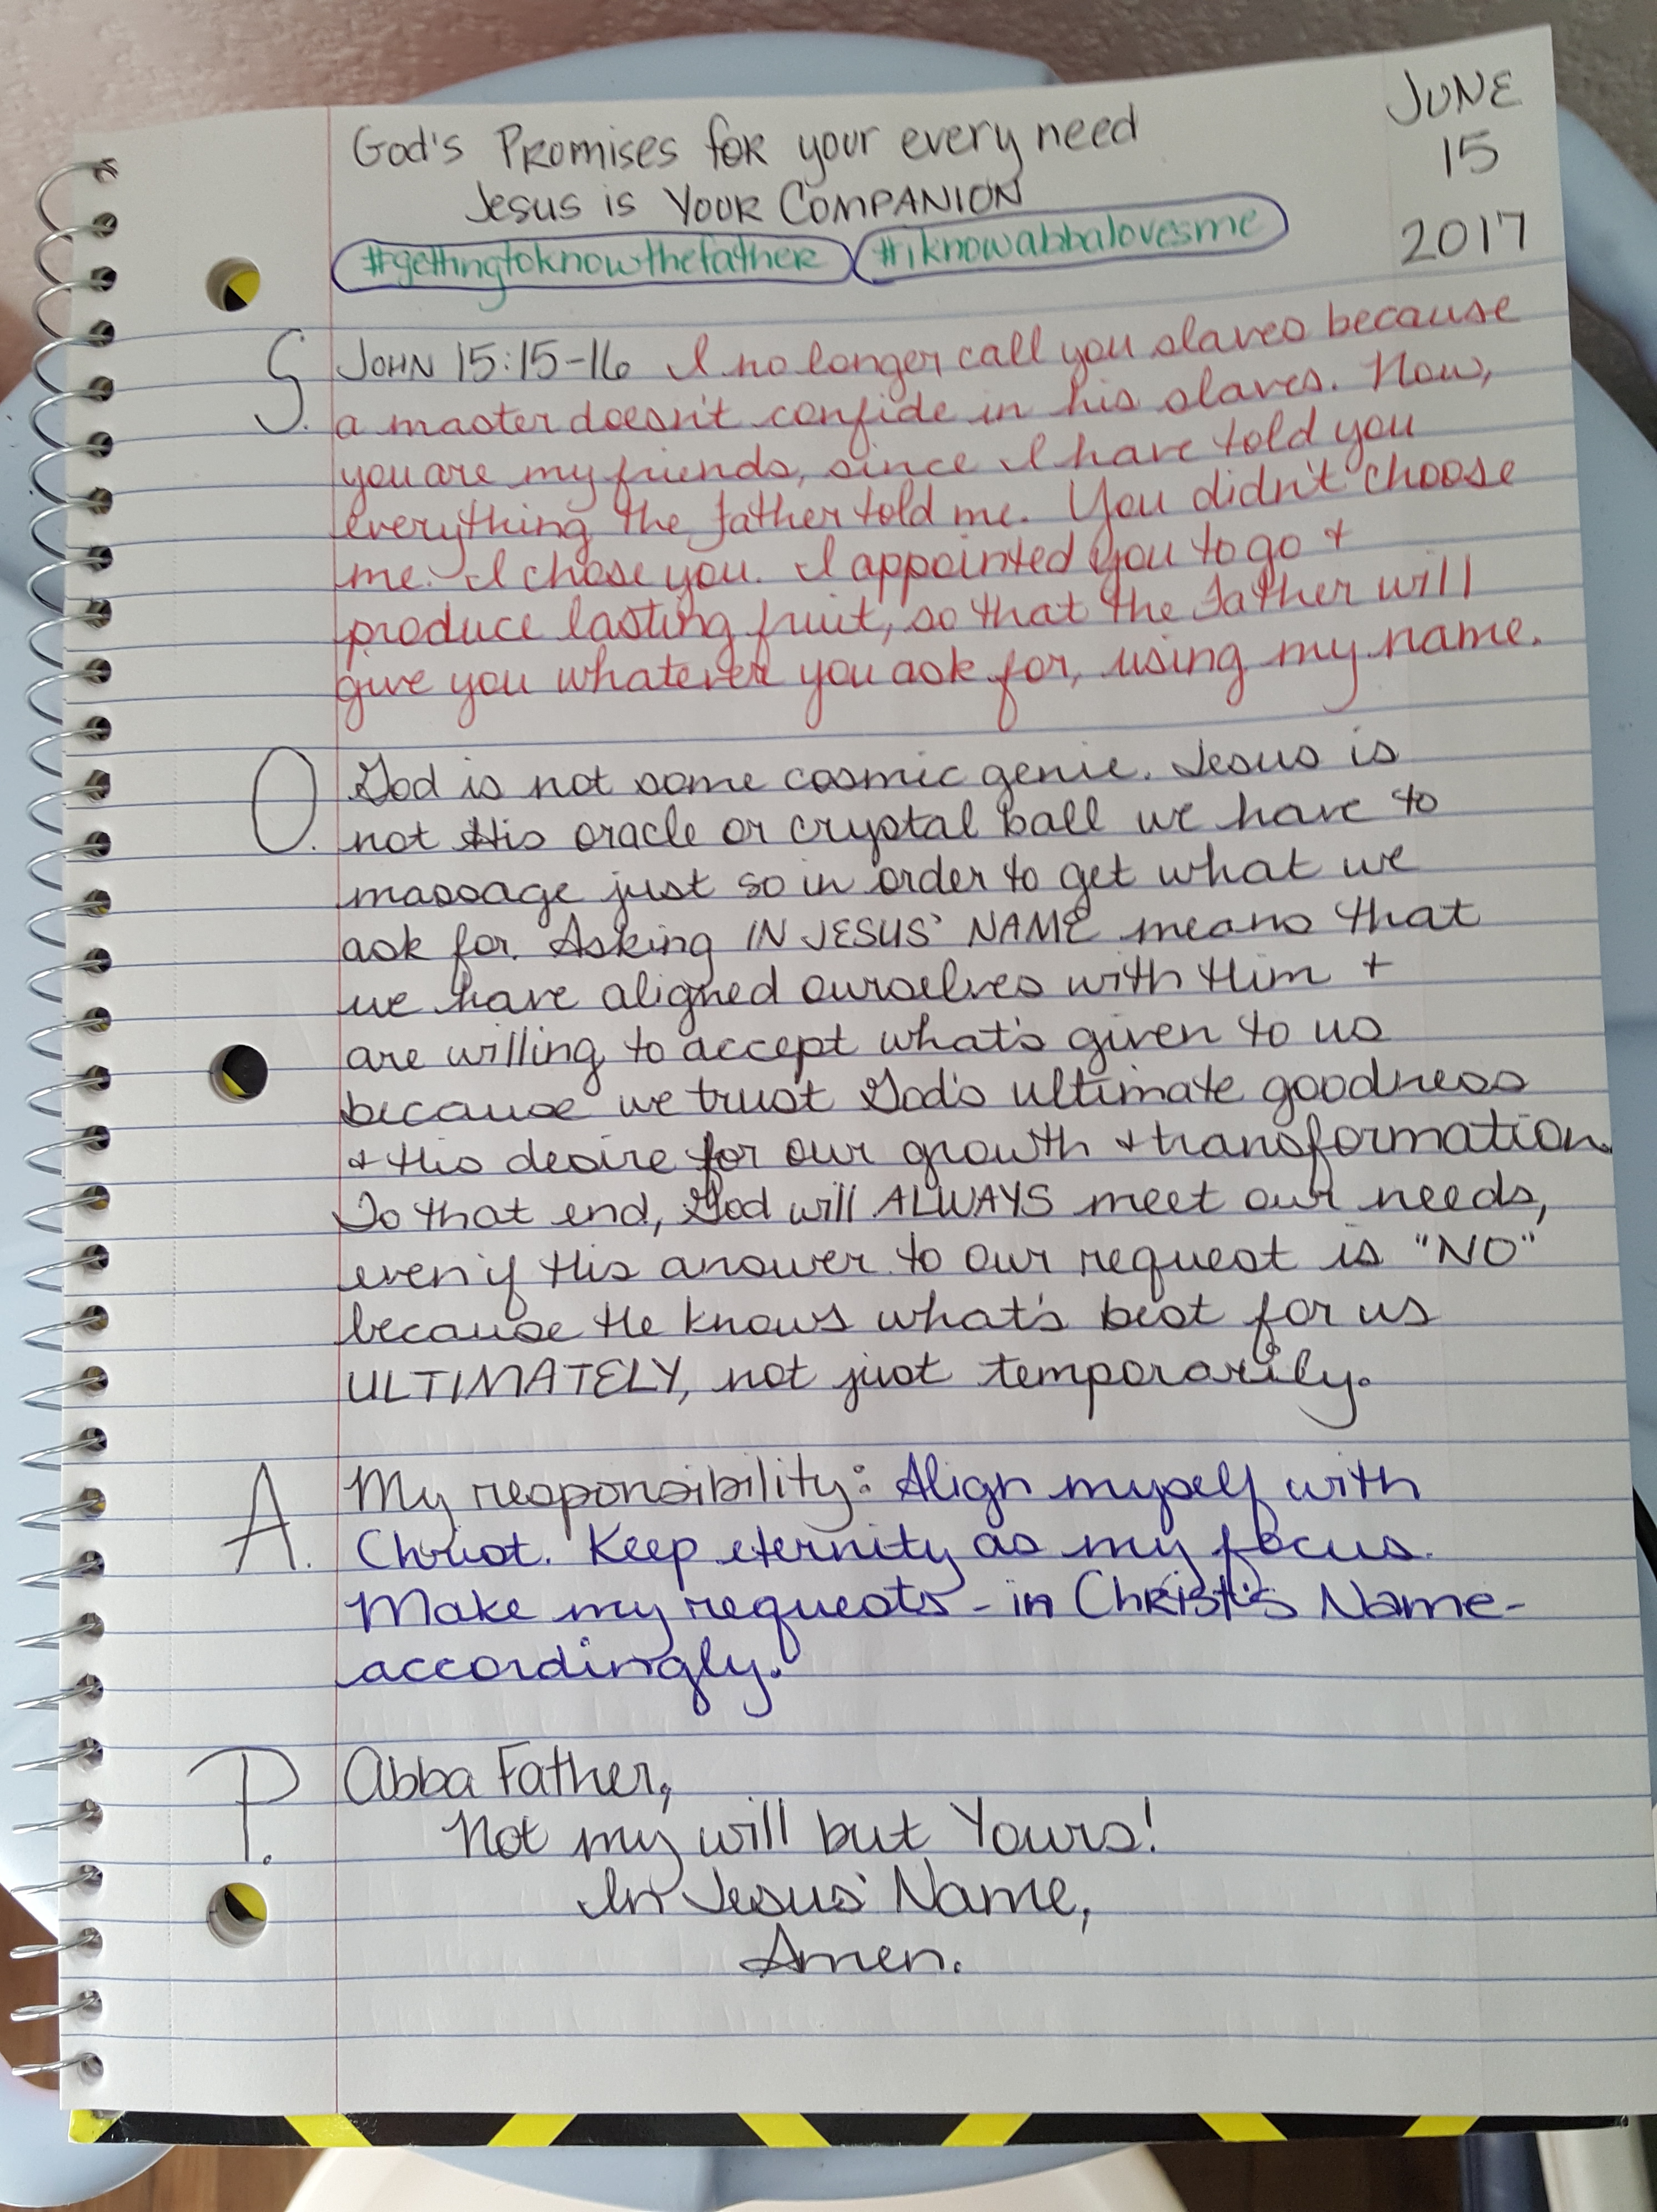 God's Promises for your every need
JUNE
15
2017
Jesus is YOUR COMPANION
#gettingtoknowthefather #iknowabbalovesme
S. JOHN 15:15-16 I no longer call you slaves because
a master doesn't confide in his slaves. Now,
you are my friends, since I have told you
everything the Father told me. You didn't choose
me. I chose you. I appointed you to go +
produce lasting fruit, so that the Father will
give you whatever you ask for, using my name.
O. God is not some cosmic genie. Jesus is
not His oracle or crystal ball we have to
massage just so in order to get what we
ask for. Asking IN JESUS' NAME means that
we have aligned ourselves with Him +
are willing to accept what's given to us
because we trust God's ultimate goodness
+ His desire for our growth + transformation.
To that end, God will ALWAYS meet our needs,
even if His answer to our request is "NO"
because He knows what's best for us
ULTIMATELY, not just temporarily.
A. My responsibility: Align myself with
Christ. Keep eternity as my focus.
Make my requests - in Christ's Name -
accordingly.
P. Abba Father,
Not my will but Yours!
In Jesus' Name,
Amen.